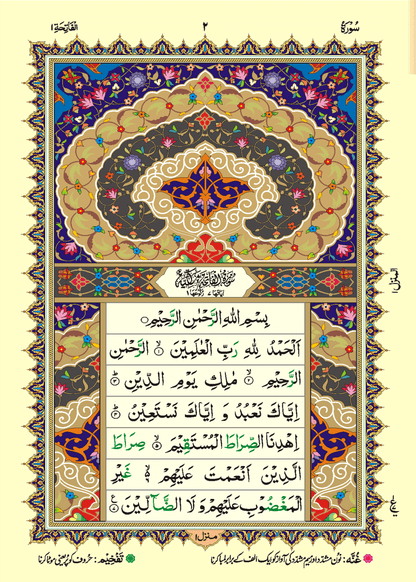 سُوْرَۃُ ۲ اَلْفَاتِحَة ۱
سُوْرَةُ الْفَاتِحَةِ مَكِّيَّةٌ
بِسْمِ اللّٰهِ الرَّحْمٰنِ الرَّحِيْمِ
اَلْحَمْدُ لِلّٰهِ رَبِّ الْعٰلَمِيْنَ ۙ۱ الرَّحْمٰنِ
الرَّحِيْمِ ۙ۲ مٰلِكِ يَوْمِ الدِّيْنِ ؕ۳
اِيَّاكَ نَعْبُدُ وَ اِيَّاكَ نَسْتَعِيْنُ ؕ۴
اِهْدِنَا الصِّرَاطَ الْمُسْتَقِيْمَ ۙ۵ صِرَاطَ
الَّذِيْنَ اَنْعَمْتَ عَلَيْهِمْ ۙ۶ غَيْرِ
الْمَغْضُوْبِ عَلَيْهِمْ وَ لَا الضَّآلِّيْنَ
منزل۱
المنزل۱
غُنّہ: نون مشدد اور میم مشدد کی آواز کو ایک الف کے برابر لمبا کرنا
تفخیم: حروف کو پُر یعنی موٹا کرنا